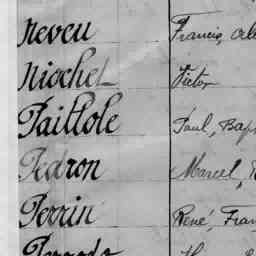 Neveu Francis,
Niochet Victor
Paillole Paul,
Pedron Marcel,
Perrin René,